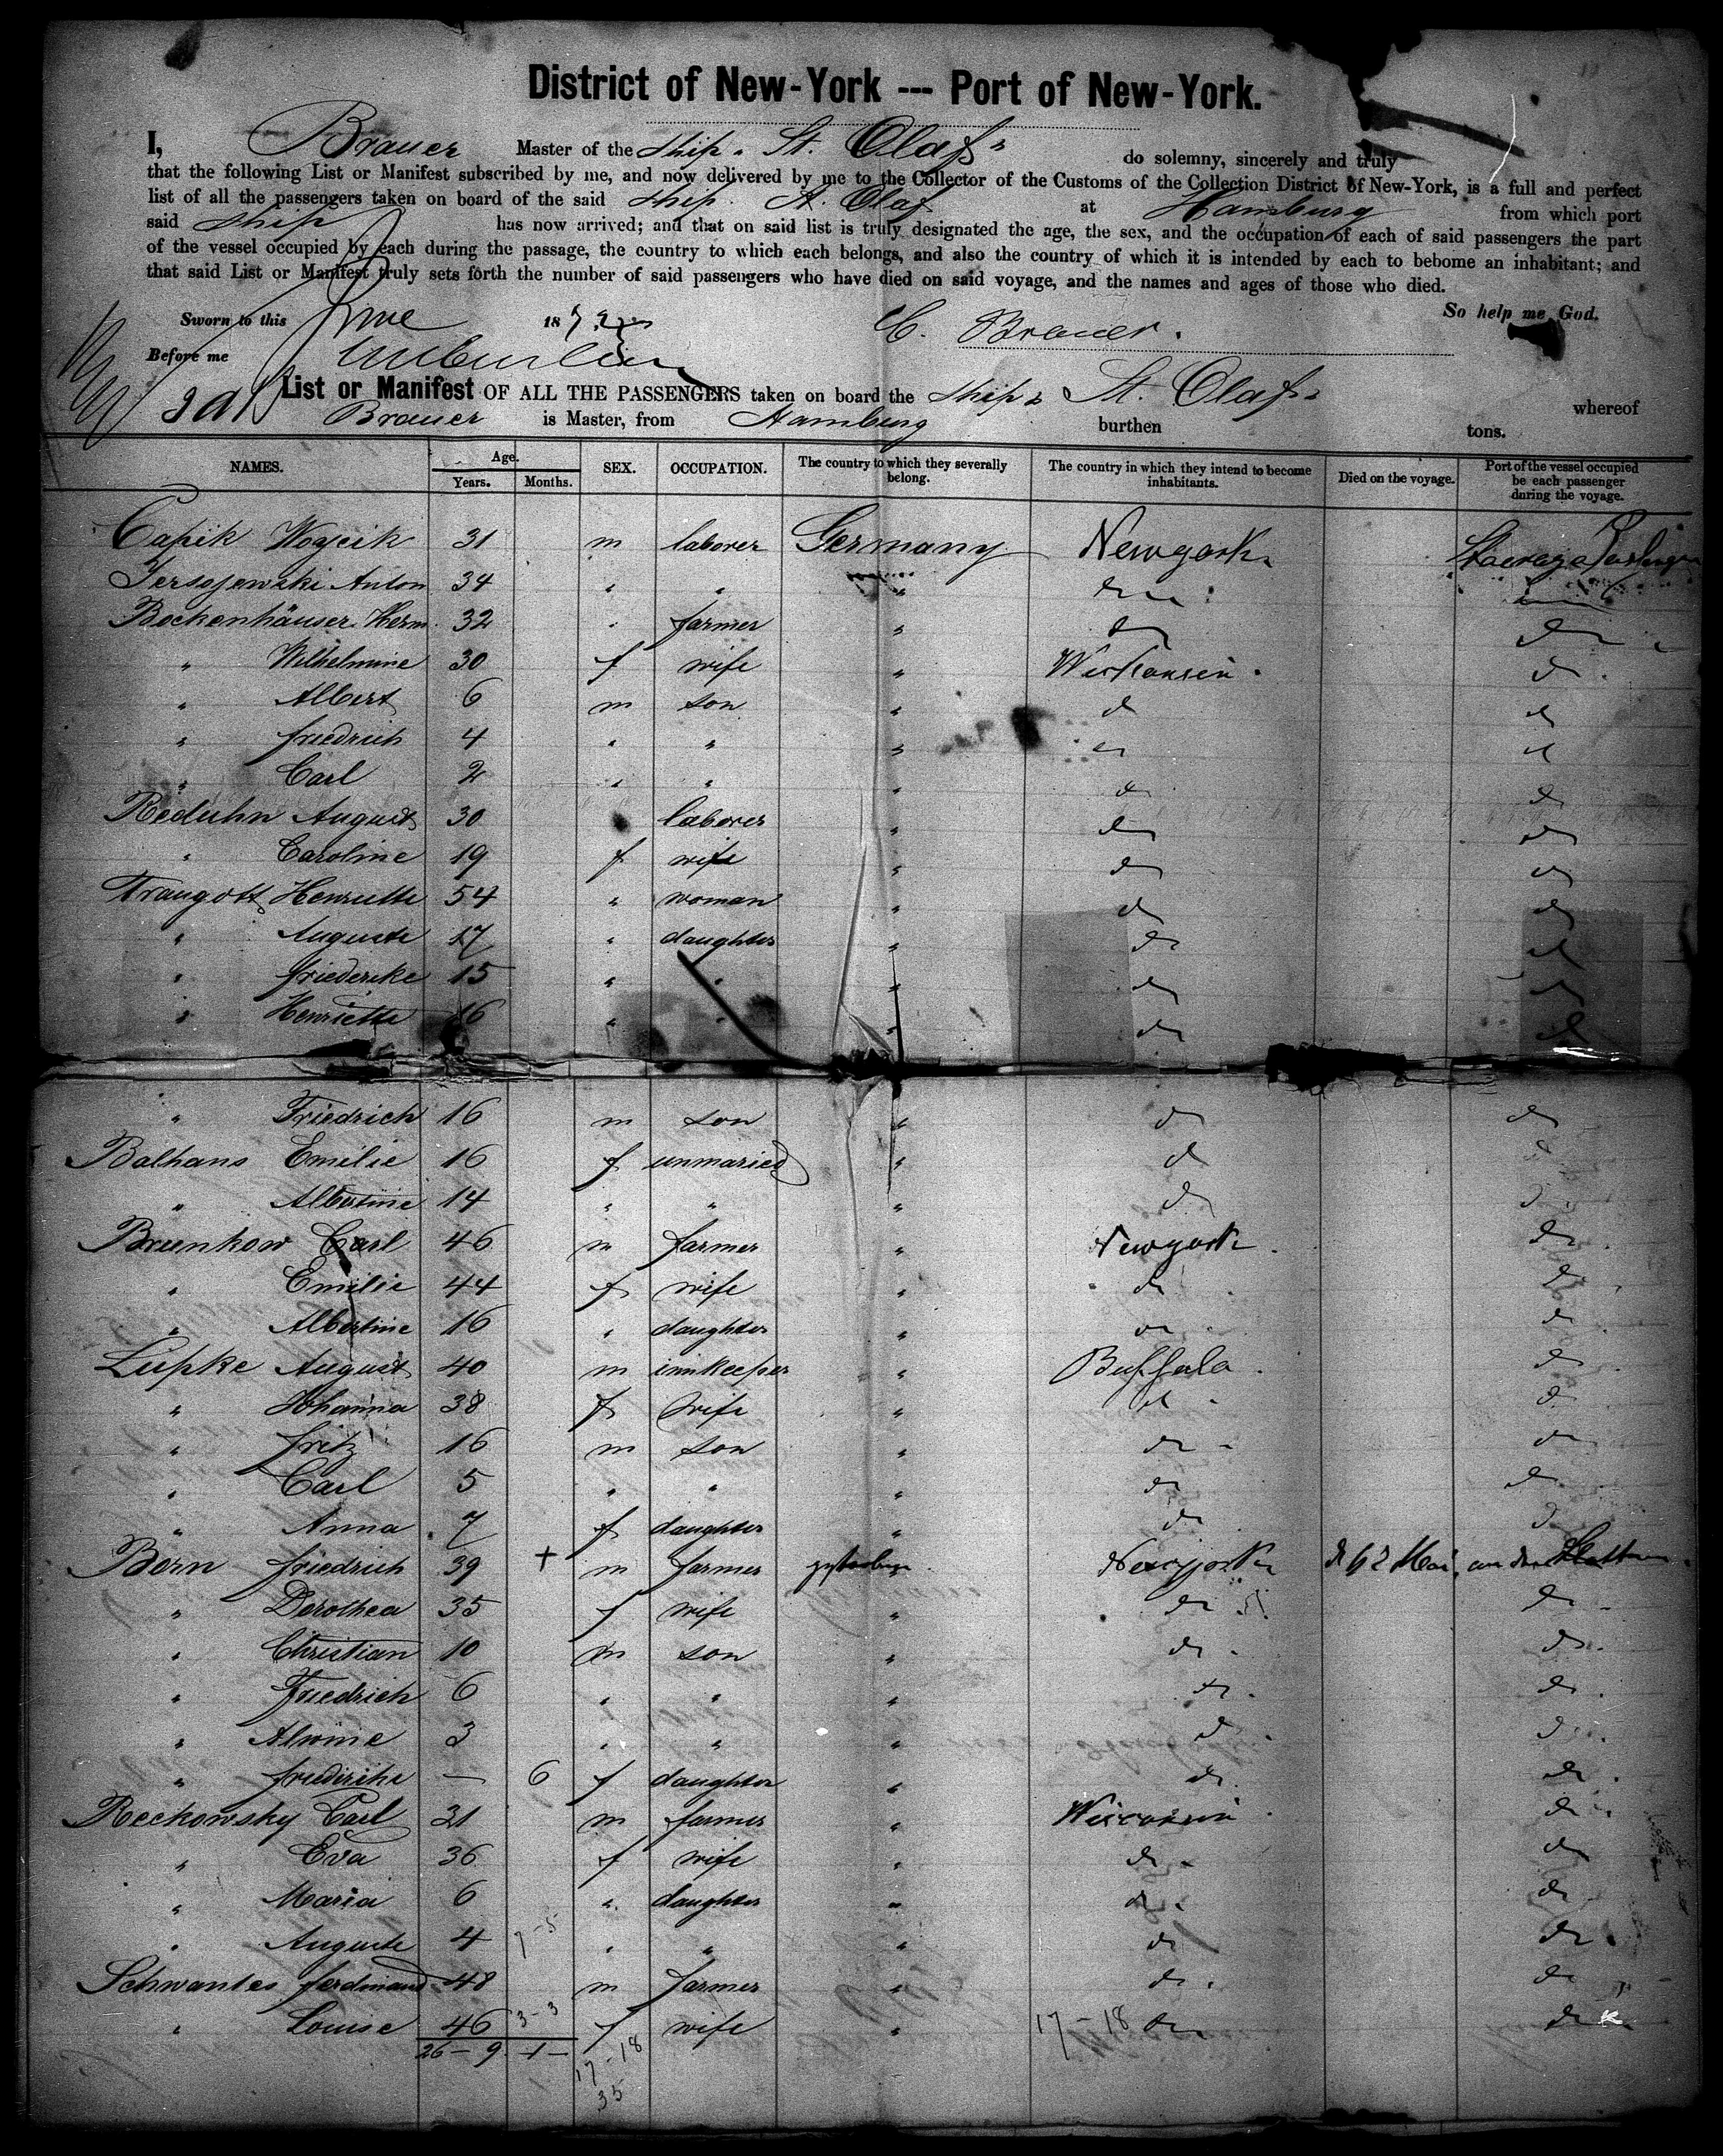 District of New-York --- Port of New-York.
I, Brauer Master of the ship „ St. Olaf " do solemny, sincerely and truly
that the following List or Manifest subscribed by me, and now delivered by me to the Collector of the Customs of the Collection District of New-York, is a full and perfect
list of all the passengers taken on board of the said ship St. Olaf at Hamburg from which port
said ship has now arrived; and that on said list is truly designated the age, the sex, and the occupation of each of said passengers the part
of the vessel occupied by each during the passage, the country to which each belongs, and also the country of which it is intended by each to bebome an inhabitant; and
that said List or Manifest truly sets forth the number of said passengers who have died on said voyage, and the names and ages of those who died.
So help me God.
Sworn to this June 187 C. Brauer.
Before me
List or Manifest OF ALL THE PASSENGERS taken on board the ship „ St. Olaf " whereof
Brauer is Master, from Hamburg burthen tons.
NAMES. Age. Years. Months. SEX. OCCUPATION. The country to which they severally belong. The country in which they intend to become inhabitants. Died on the voyage. Port of the vessel occupied be each passenger during the voyage.
Capik Woycik 31 m laborer Germany Newyork
Anton 34 " " " do
Bockenhäuser Herm. 32 " farmer " do do
" Wilhelmine 30 f wife " do
" Albert 6 m son " do do
" Friedrich 4 " " " do do
" Carl 2 " " " do do
Reduhn August 30 laborer " do do
" Caroline 19 f wife " do do
Traugott Henriette 54 " woman " do do
" Auguste 17 " daughter " do do
" Friederike 15 " " " do do
" Henriette 16 " " " do do
" Friedrich 16 m son " do do
Balhans Emilie 16 f unmaried " do do
" Albertine 14 " " " do do
Breenkow Carl 46 m farmer " Newyork do
" Emilie 44 f wife " do do
" Albertine 16 " daughter " do do
Lupke August 40 m innkeeper " Buffalo do
" Johanna 38 f wife " do do
" Fritz 16 m son " do do
" Carl 5 " " " do do
" Anna 7 f daughter " do do
Born Friedrich 39 + m farmer gestorben Newyork Mai
" Dorothea 35 f wife " do do
" Christian 10 m son " do do
" Friedrich 6 " " " do do
" Alwine 3 " " " do do
" Friederike — 6 f daughter " do do
Reckowsky Carl 31 m farmer " Wisconsin do
" Eva 36 f wife " do do
" Maria 6 " daughter " do do
" Auguste 4 7-5 " " " do do
Schwantes Ferdinand 48 m farmer " do do
" Louise 46 3-3 f wife " 17-18 do do
26 - 9 - 1 -
17-18
35